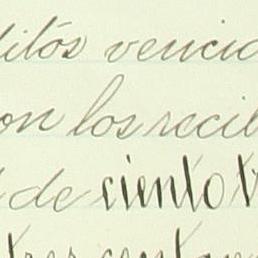 ditós vencid
on los recib
de ciento t
tres centa